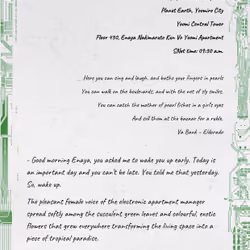 Planet Earth, Yoomiro City
Yoomi Central Tower
Floor 430, Enaya Nakimarato Kun Vo Yoomi Apartment
SNet time: 09:30 a.m.
...Here you can sing and laugh, and bathe your fingers in pearls
You can walk on the boulevards, and with the rest of its smiles,
You can catch the mother of pearl fishes in a girl's eyes
And sell them at the bazaar for a ruble,
Va Bank - Eldorado
- Good morning Enaya, you asked me to wake you up early. Today is
an important day and you can't be late. You told me that yesterday.
So, wake up.
The pleasant female voice of the electronic apartment manager
spread softly among the succulent green leaves and colourful, exotic
flowers that grew everywhere transforming the living space into a
piece of tropical paradise.